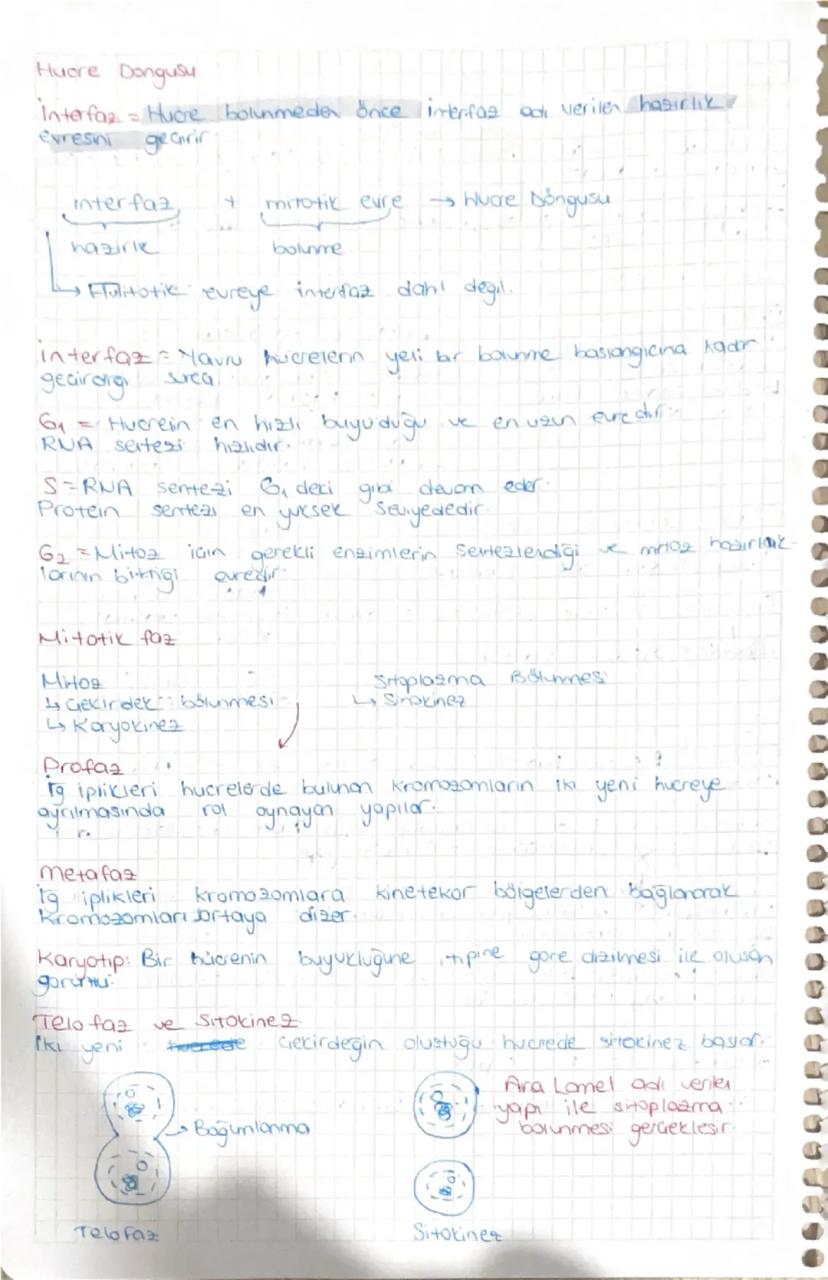 Hucre Dongusu
İnterfaz = Hucre bolunmeden önce interfaz adı verilen hazırlık
evresini geçirir
interfaz + mitotik evre → Hucre Döngusu
hazırlık bolunme
↳ Mitotik evreye interfaz dahil değil.
İnterfaz = Yavru hücrelerin yeni bir bolunme baslangıcına kadar
gecirdigi surec
G1 = Hucrenin en hızlı buyuduğu ve en uzun evredir.
RNA sentezi hızlıdır.
S = RNA sentezi G1 deki gibi devam eder.
Protein sentezi en yuksek seviyededir.
G2 = Mitoz icin gerekli enzimlerin sentezlendiği ve mitoz hazırlık-
larının bittiği evredir.
Mitotik faz
Mitoz Sitoplazma Bölunmesi
↳ Çekirdek bölunmesi ↳ Sitokinez
↳ Karyokinez
Profaz
İğ iplikleri hucrelerde bulunan kromozomların iki yeni hucreye
ayrılmasında rol oynayan yapılar.
Metafaz
İğ iplikleri kromozomlara kinetekor bölgelerden bağlanarak
Kromozomları ortaya dizer.
Karyotip: Bir hücrenin buyukluğune, tipine göre dizilmesi ile olusan
goruntu.
Telofaz ve Sitokinez
İki yeni Çekirdeğin olustuğu hucrede sitokinez baslar.
Ara Lamel adı verilen
yapı ile sitoplazma
bolunmesi gerceklesir.
→ Boğumlanma
Telofaz Sitokinez